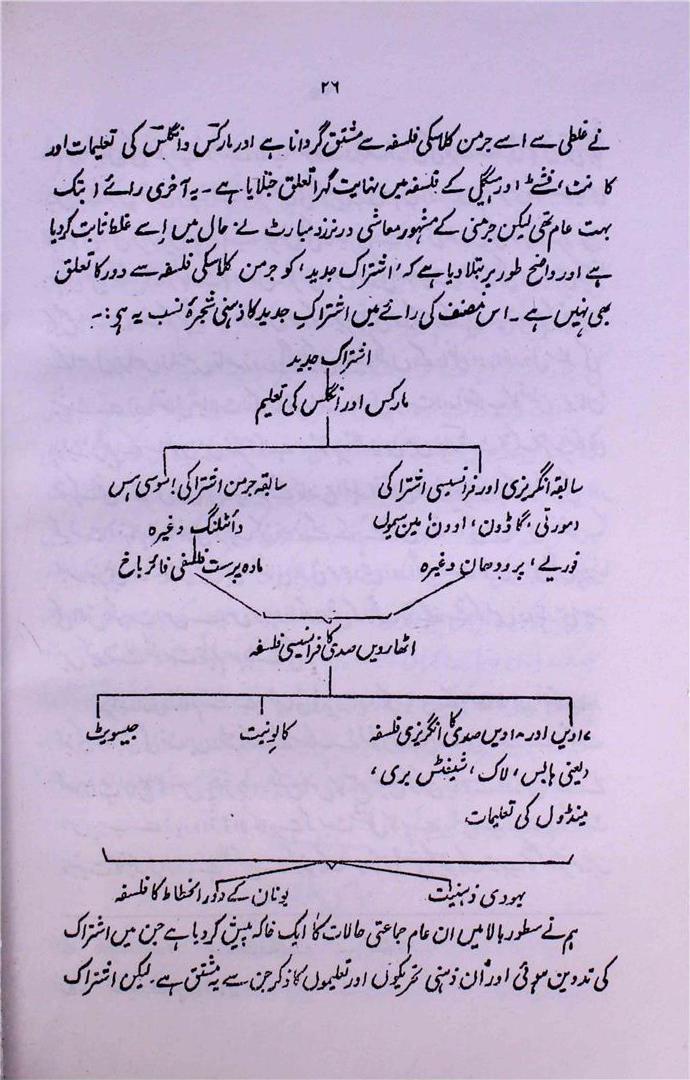 ۲۶
نے غلطی سے اسے جرمن کلاسکی فلسفہ سے مشتق گردانا ہے اور مارکس و انگلس کی تعلیمات اور
کانٹ، فشٹے اور ہیگل کے فلسفہ میں نہایت گہرا تعلق جتلایا ہے۔ یہ آخری رائے ابتک
بہت عام تھی لیکن جرمنی کے مشہور معاشی ورنرزدمبارٹ نے حال میں اسے غلط ثابت کردیا
ہے اور واضح طور پر بتلا دیا ہے کہ 'اشتراک جدید' کو جرمن کلاسکی فلسفہ سے دور کا تعلق
بھی نہیں ہے۔ اس مصنف کی رائے میں اشتراکِ جدید کا ذہنی شجرۂ نسب یہ ہے:۔
اشتراک جدید
مارکس اور انگلس کی تعلیم
سابقہ انگریزی اور فرانسیسی اشتراکی سابقہ جرمن اشتراکی (موسی ہس
(مورتی، گاڈون، اوون، سین سیمول وائٹلنگ وغیرہ
فوریے، پرودہان وغیرہ مادہ پرست فلسفی فائرباخ
اٹھارویں صدی کا فرانسیسی فلسفہ
۱۷ویں اور ۱۸ویں صدی کا انگریزی فلسفہ کالونیت جیسویٹ
(یعنی ہابس، لاک، شیفٹس بری،
مینڈول کی تعلیمات
یہودی ذہنیت یونان کے دور انحطاط کا فلسفہ
ہم نے سطور بالا میں ان عام جماعتی حالات کا ایک خاکہ پیش کردیا ہے جن میں اشتراک
کی تدوین ہوئی اور اُن ذہنی تحریکوں اور تعلیموں کا ذکر جن سے یہ مشتق ہے۔ لیکن اشتراک